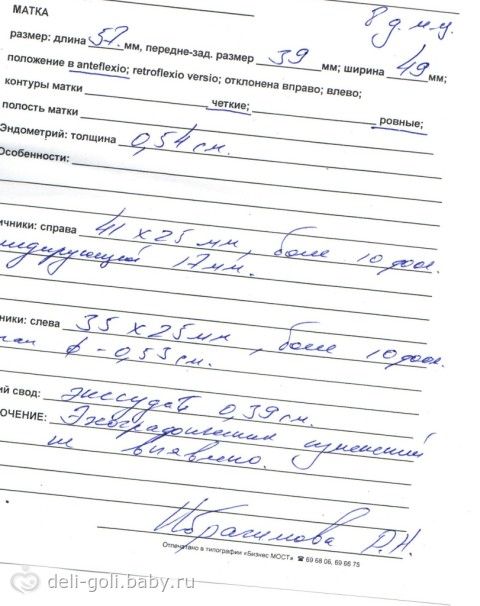 МАТКА
8 д.м.ц.
размер: длина 57. мм, передне-зад. размер 39 мм; ширина 49 мм;
положение в anteflexio; retroflexio versio; отклонена вправо; влево;
контуры матки четкие; ровные;
полость матки
Эндометрий: толщина 0,54 см.
Особенности:
ичники: справа 41 x 25 мм, боле 10 фол.
17 мм.
ники: слева 35 x 25 мм, боле 10 фол.
ф - 0,53 см.
ий свод: экссудат 0,39 см.
ЮЧЕНИЕ: Эхографически изменений
не выявлено.
Ибрагимова Р.Н.
Отпечатано в типографии «Бизнес МОСТ» ☎ 69 68 06, 69 66 75
deli-goli.baby.ru